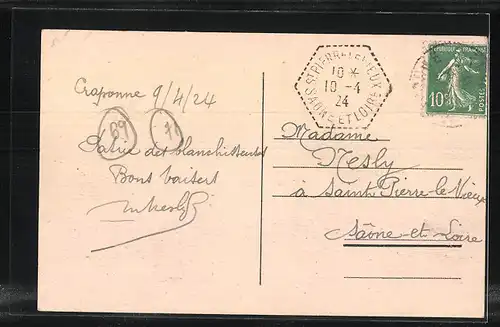 Craponne 9/4/24
69
Patrie des blanchisseuses
Bons baisers
ST PIERRE-LE-VIEUX
10 *
10 - 4
24
SAONE-ET-LOIRE
REPUBLIQUE FRANÇAISE
10c
POSTES
Madame
Mesly
à Saint Pierre-le-Vieux
Saône-et-Loire